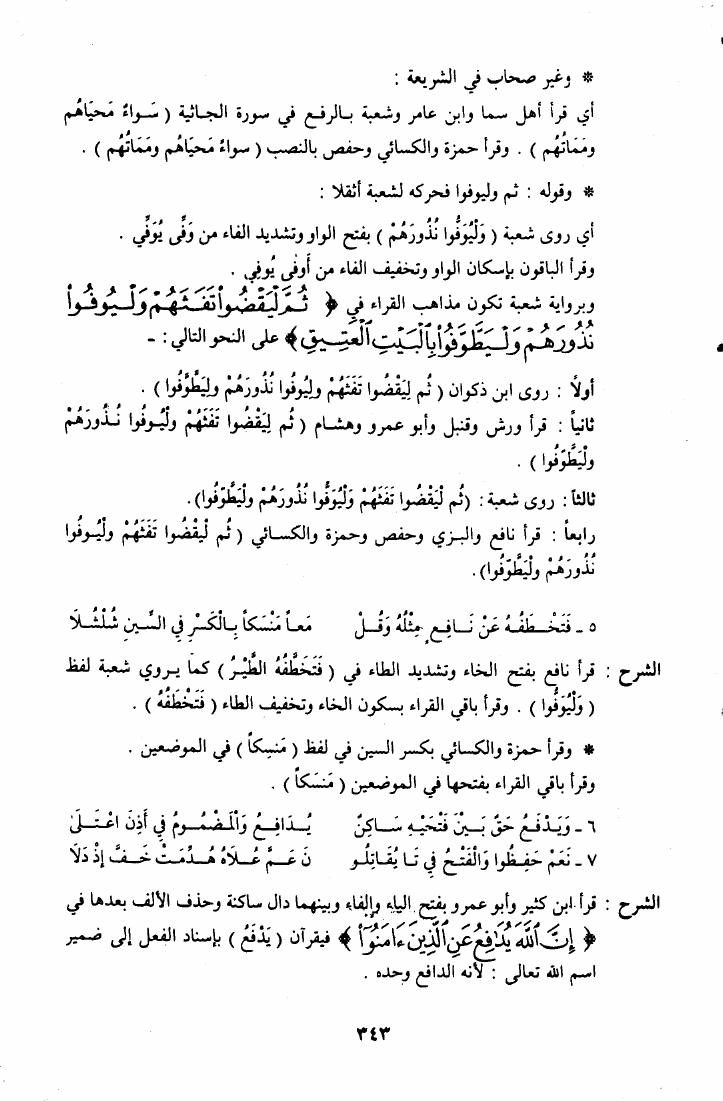 * وغير صحاب في الشريعة :
أي قرأ أهل سما وابن عامر وشعبة بالرفع في سورة الجاثية ( سَواءٌ مَحيَاهُم
ومَمَاتُهُم ) . وقرأ حمزة والكسائي وحفص بالنصب ( سواءً مَحيَاهُم ومَمَاتُهُم ) .
* وقوله : ثم وليوفوا فحركه لشعبة أثقلا :
أي روى شعبة ( وَلْيُوَفُّوا نُذُورَهُمْ ) بفتح الواو وتشديد الفاء من وَفَّى يُوَفِّي .
وقرأ الباقون بإسكان الواو وتخفيف الفاء من أَوفَى يُوفِي .
وبرواية شعبة تكون مذاهب القراء في ﴿ ثُمَّ لْيَقْضُوا۟ تَفَثَهُمْ وَلْيُوفُوا۟
نُذُورَهُمْ وَلْيَطَّوَّفُوا۟ بِٱلْبَيْتِ ٱلْعَتِيقِ ﴾ على النحو التالي : -
أولاً : روى ابن ذكوان ( ثُم لِيَقْضُوا تَفَثَهُمْ ولِيُوفُوا نُذُورَهُمْ ولِيَطَّوَّفُوا ) .
ثانياً : قرأ ورش وقنبل وأبو عمرو وهشام ( ثُم لِيَقْضُوا تَفَثَهُمْ ولْيُوفُوا نُذُورَهُمْ
ولْيَطَّوَّفُوا ) .
ثالثاً : روى شعبة : (ثُم لْيَقْضُوا تَفَثَهُمْ وَلْيُوَفُّوا نُذُورَهُمْ ولْيَطَّوَّفُوا).
رابعاً : قرأ نافع والبزي وحفص وحمزة والكسائي ( ثُم لْيَقْضُوا تَفَثَهُمْ ولْيُوفُوا
نُذُورَهُمْ ولْيَطَّوَّفُوا).
٥ - فَتَخْطَفُهُ عَنْ نَافِعٍ مِثْلُهُ وَقُلْ مَعاً مَنْسَكاً بِالْكَسْرِ فِي السِّينِ شُلْشُلَا
الشرح : قرأ نافع بفتح الخاء وتشديد الطاء في ( فَتَخَطَّفُهُ الطَّيْرُ ) كما يروي شعبة لفظ
( وَلْيُوَفُّوا ) . وقرأ باقي القراء بسكون الخاء وتخفيف الطاء ( فَتَخْطَفُهُ ) .
* وقرأ حمزة والكسائي بكسر السين في لفظ ( مَنسِكاً ) في الموضعين .
وقرأ باقي القراء بفتحها في الموضعين ( مَنسَكاً ) .
٦ - وَيَدْفَعُ حَقٌّ بَيْنَ فَتْحَيْهِ سَاكِنٌ يُدَافِعُ وَالْمَضْمُومُ فِي أَذِنَ اعْتَلَى
٧ - نَعَمْ حَفِظُوا وَالْفَتْحُ فِي تَا يُقَاتِلُو نَ عَمَّ عُلَاهُ هُدِّمَتْ خَفَّ إِذْ دَلَا
الشرح : قرأ ابن كثير وأبو عمرو بفتح الياء والفاء وبينهما دال ساكنة وحذف الألف بعدها في
﴿ إِنَّ ٱللَّهَ يُدَٰفِعُ عَنِ ٱلَّذِينَ ءَامَنُوٓا۟ ﴾ فيقرآن ( يَدْفَعُ ) بإسناد الفعل إلى ضمير
اسم الله تعالى : لأنه الدافع وحده .
٣٤٣